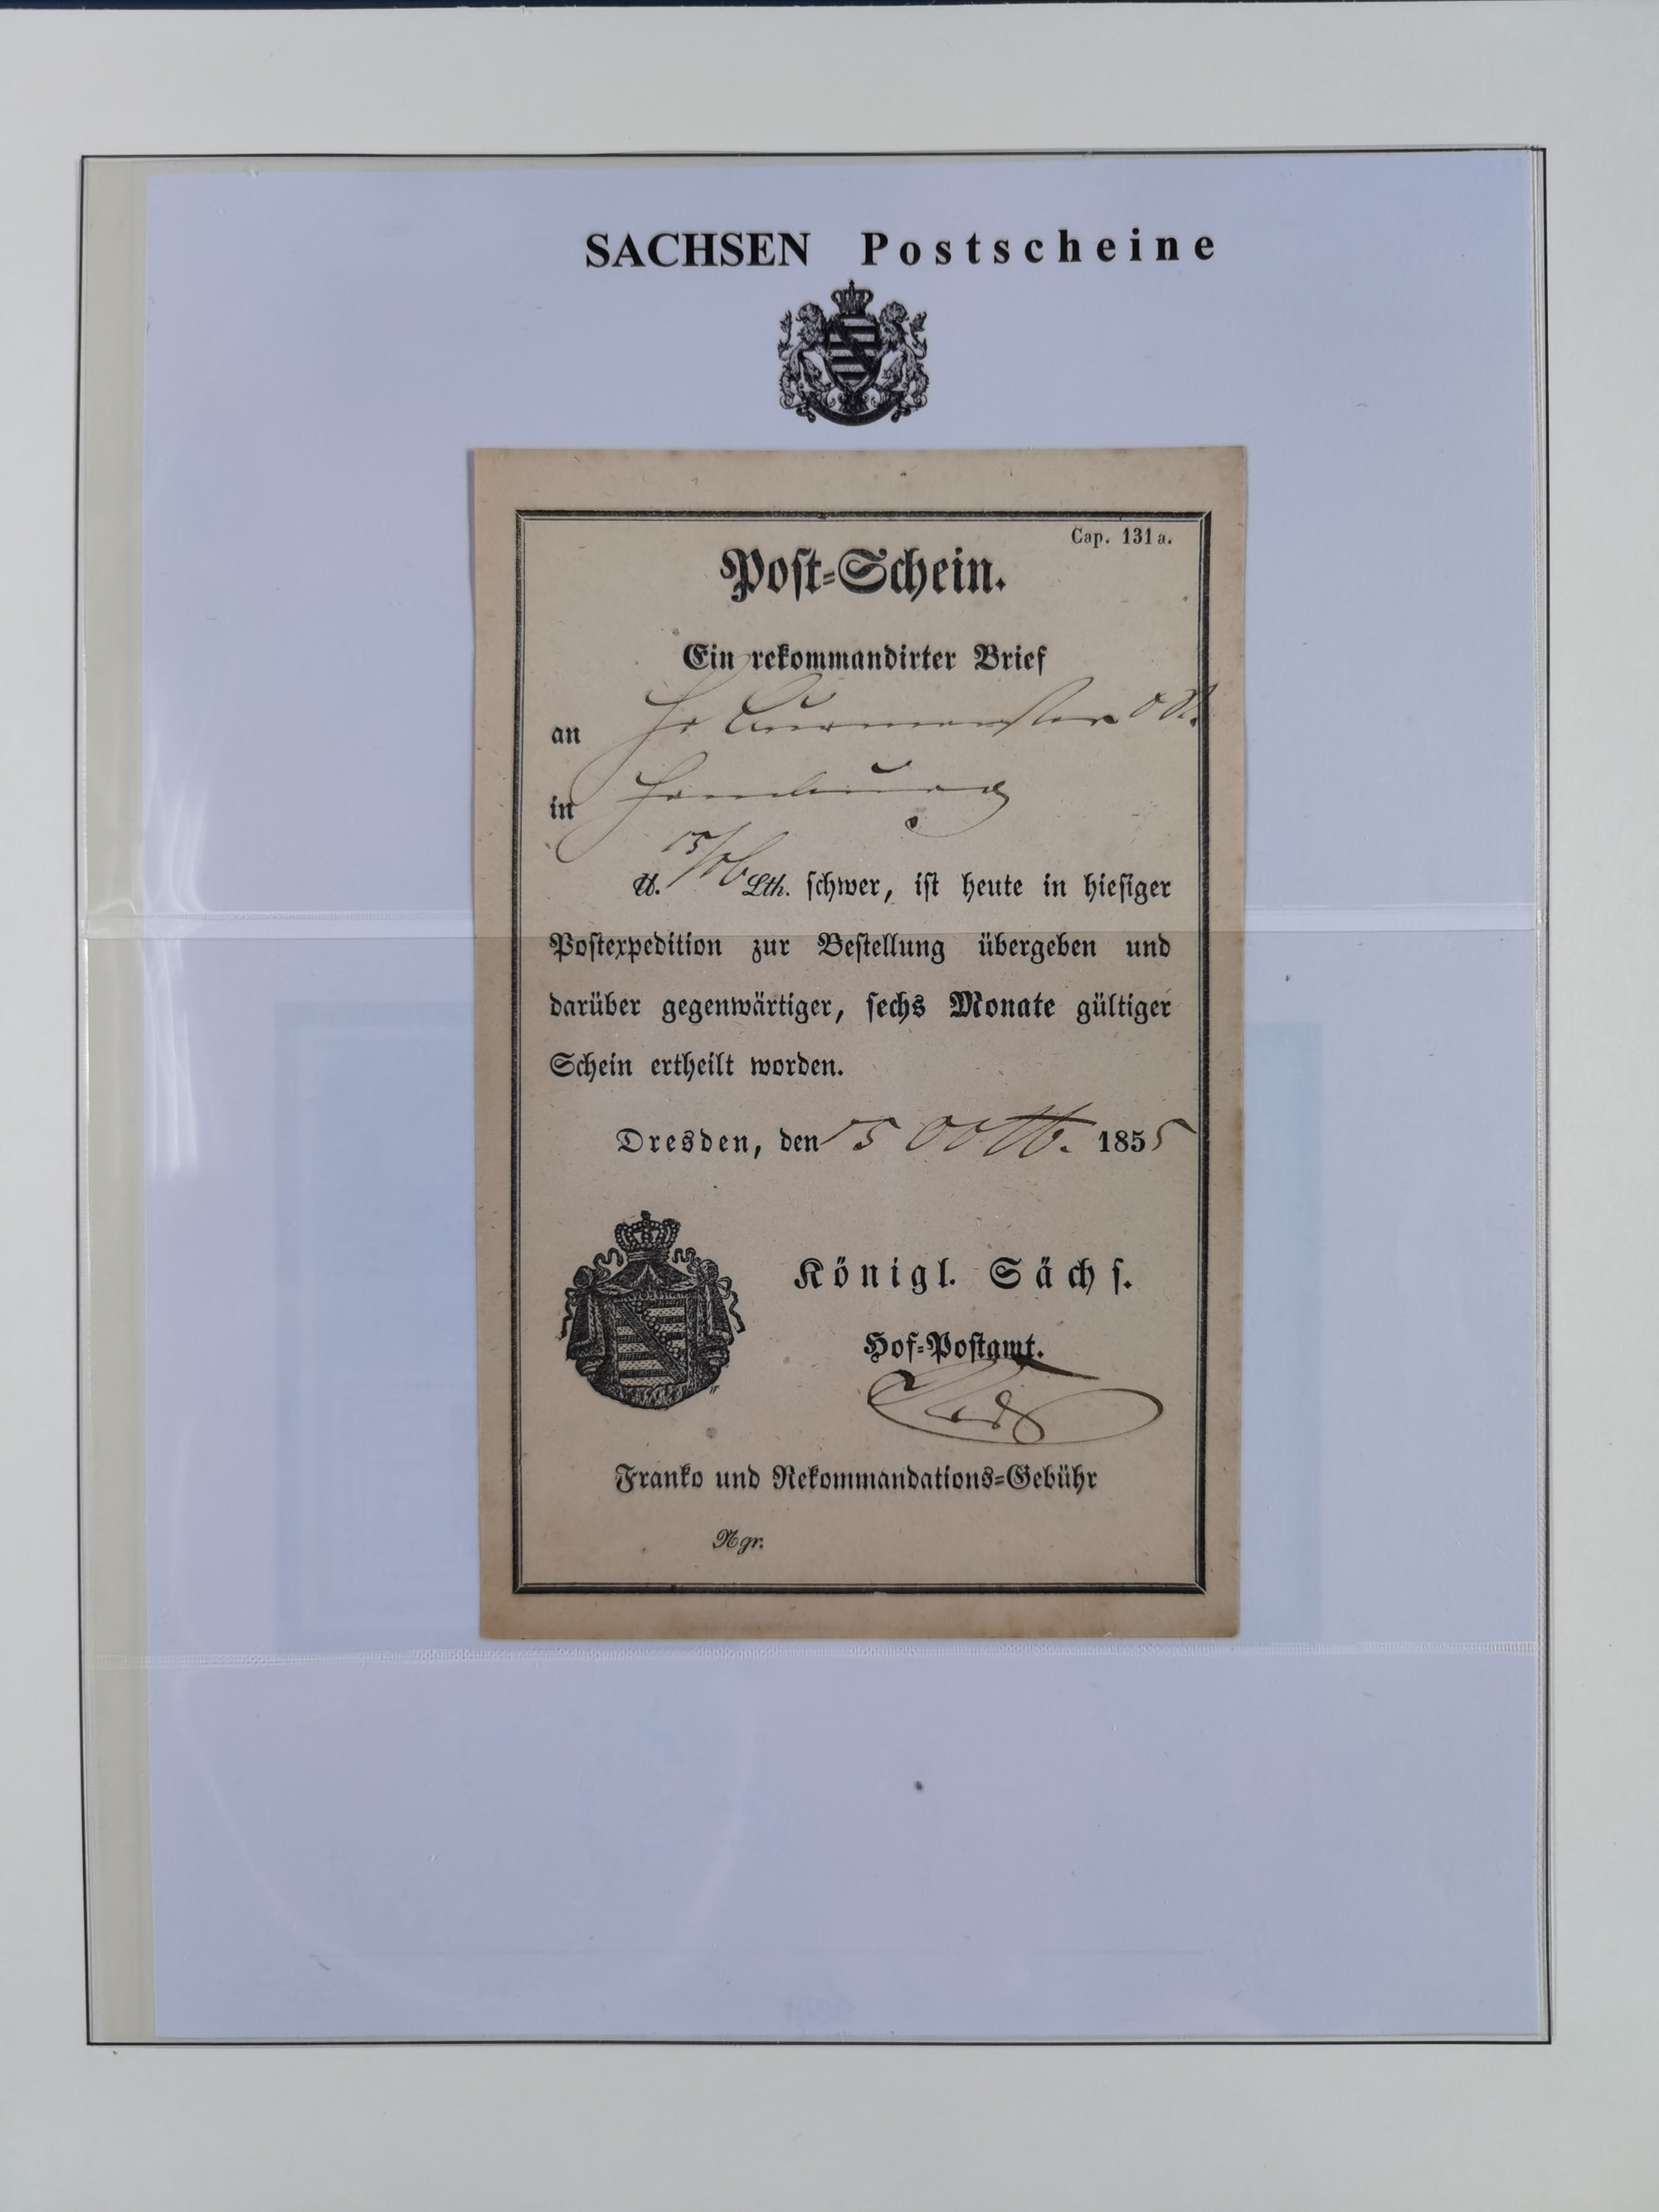 SACHSEN Postscheine
Cap. 131 a.
Post-Schein.
Ein rekommandirter Brief
an Hr Burmester
in Hamburg
℔. 15/16 Lth. schwer, ist heute in hiesiger
Postexpedition zur Bestellung übergeben und
darüber gegenwärtiger, sechs Monate gültiger
Schein ertheilt worden.
Dresden, den 15 Octb. 1855
Königl. Sächs.
Hof-Postamt.
Franko und Rekommandations-Gebühr
Ngr.